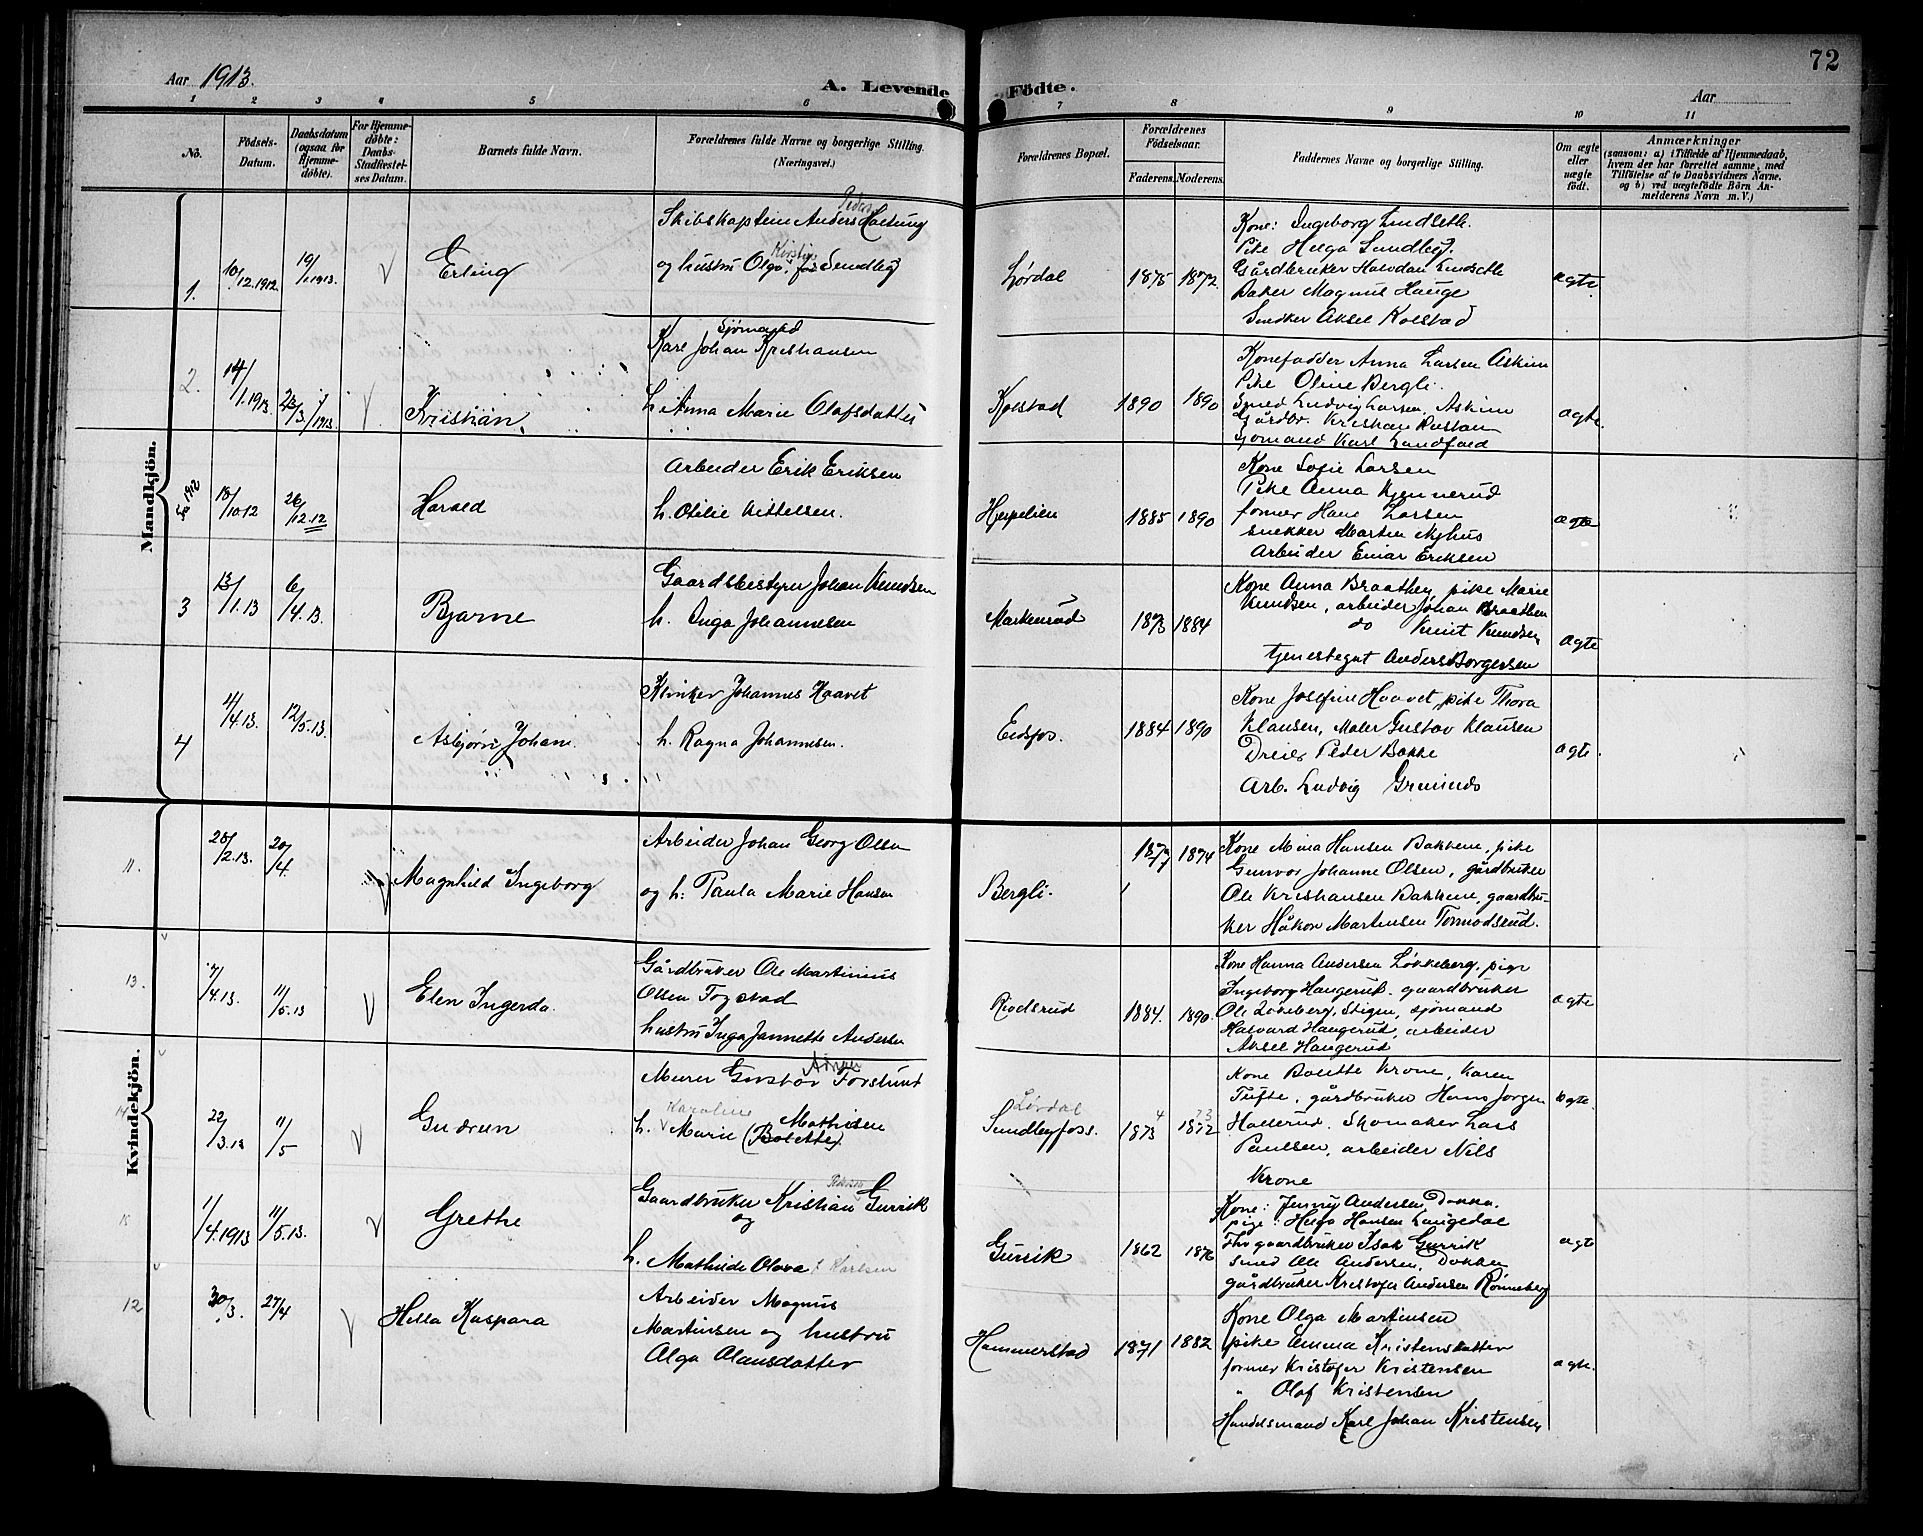 72
Aar 1913.
A. Levende Födte.
Aar
1 2 3 4 5 6 7 8 9 10 11
No.
Födsels-
Datum.
Daabsdatum
(ogsaa for
Hjemme-
döbte).
For Hjemme-
döbte:
Daabs-
Stadfæstel-
ses Datum.
Barnets fulde Navn.
Forældrenes fulde Navne og borgerlige Stilling.
(Næringsvei.)
Forældrenes Bopæl.
Forældrenes
Födselsaar.
Faderens. Moderens.
Faddernes Navne og borgerlige Stilling.
Om ægte
eller
uægte
födt.
Anmærkninger
(saasom: a) i Tilfælde af Hjemmedaab,
hvem der har forrettet samme, med
Tilföielse af to Daabsvidners Navne,
og b) ved uægtefödte Börn An-
melderens Navn m. V.)
Mandkjön.
1.
10/12.1912.
19/1.1913.
Erling
Peder
Skibskaptein Anders Holtung
og hustru Olga Kirstine Sundby
Lørdal
1875 1872
Kone: Ingeborg Lindseth.
Pike Helga Sundby.
Gårdbruker Halvdan Lindseth
Baker Magnus Hauge
Snedker Aksel Kolstad
ægte
2.
14/1.1913.
23/3 1913.
Kristian
Sjømand
Karl Johan Kristiansen
h. Anna Marie Olafsdatter
Kolstad
1890 1890
Konefadder Anna Larsen Askim
Pike Oline Bergli.
Smed Ludvig Larsen, Askim
Gårdbr. Kristian
Sjømand Karl
ægte.
1912
18/10 12
26/12.12
Harald
Arbeider Erik Eriksen
h. Otilie Kittelsen.
1885 1890
Kone Sofie Larsen
Pike Anna Kjennerud
former Hans Larsen
snekker Martin Nyhus
Arbeider Einar Eriksen
ægte
3
13/1.13
6/4.13.
Bjarne
Gaardsbestyrer Johan Knudsen
h. Inga Johannesen
Markerud
1873 1884
Kone Anna Braathen, pike Marie
Knudsen, arbeider Johan Braathen
do Knut Knudsen
tjenestegut Anders Borgersen
ægte
4
11/4.13.
12/5.13.
Asbjørn Johan.
Klinker Johannes Haavet
h. Ragna Johannesen.
Eidsfos.
1884 1890
Kone Josefine Haavet, pike Thora
Klausen, Maler Gustav Klausen
Dreier Peder Bakke
Arb. Ludvig
ægte.
Kvindekjön.
11.
28/2.13.
20/4.
Magnhild Ingeborg
Arbeider Johan Georg Olsen
og h. Paula Marie Hansen
Bergli.
1877 1874
Kone Mina Hansen Bakkene, pike
Gunvor Johanne Olsen, gårdbruker
Ole Kristiansen Bakkene, gaardbru-
ker Håkon Martinsen Tormodsrud.
13.
7/4.13.
11/5.13
Elen Ingerda.
Gårdbruker Ole Martinius
Olsen Fogstad
hustru Inga Jannette Andersen
1884. 1890.
Kone Hanna Andersen Løkkeberg, pige
Ingeborg Haugerud. gaardbruker
Ole Løkeberg, Stigen, sjømand
Halvard Haugerud, arbeider
Aksel Haugerud
ægte
14
22/3.13
11/5
Gudrun
Murer Gustav Adrian Forslund
Karoline
h. Marie (Bolette) Mathisen
Lørdal
Sundbyfoss.
4
1873
73
1872
Kone Bolette Krone, Karen
Tufte, gårdbruker Hans Jørgen
Hallerud. Skomaker Lars
Paulsen, arbeider Nils
Krone
ægte.
15
1/4.1913
11/5.13.
Grethe
Gaardbruker Kristian Gurrik
og
h. Mathilde Olava f Karlsen
Gurrik
1862 1876
Kone: Jenny Andersen Dokka.
pige: Helga Hansen Langedal
gaardbruker Isak Gurrik
Smed Ole Andersen, Dokken
gårdbruker Kristofer Andersen Rønneberg
ægte
12
30/3.
27/4
Hella Kaspara
Arbeider Magnus
Martinsen og hustru
Olga Olausdatter
Hammerstad
1871 1882
Kone Olga Martinsen
pike Amma Kristensdatter
former Kristofer Kristensen
" Olaf Kristensen
Handelsmand Karl Johan Kristensen
ægte.